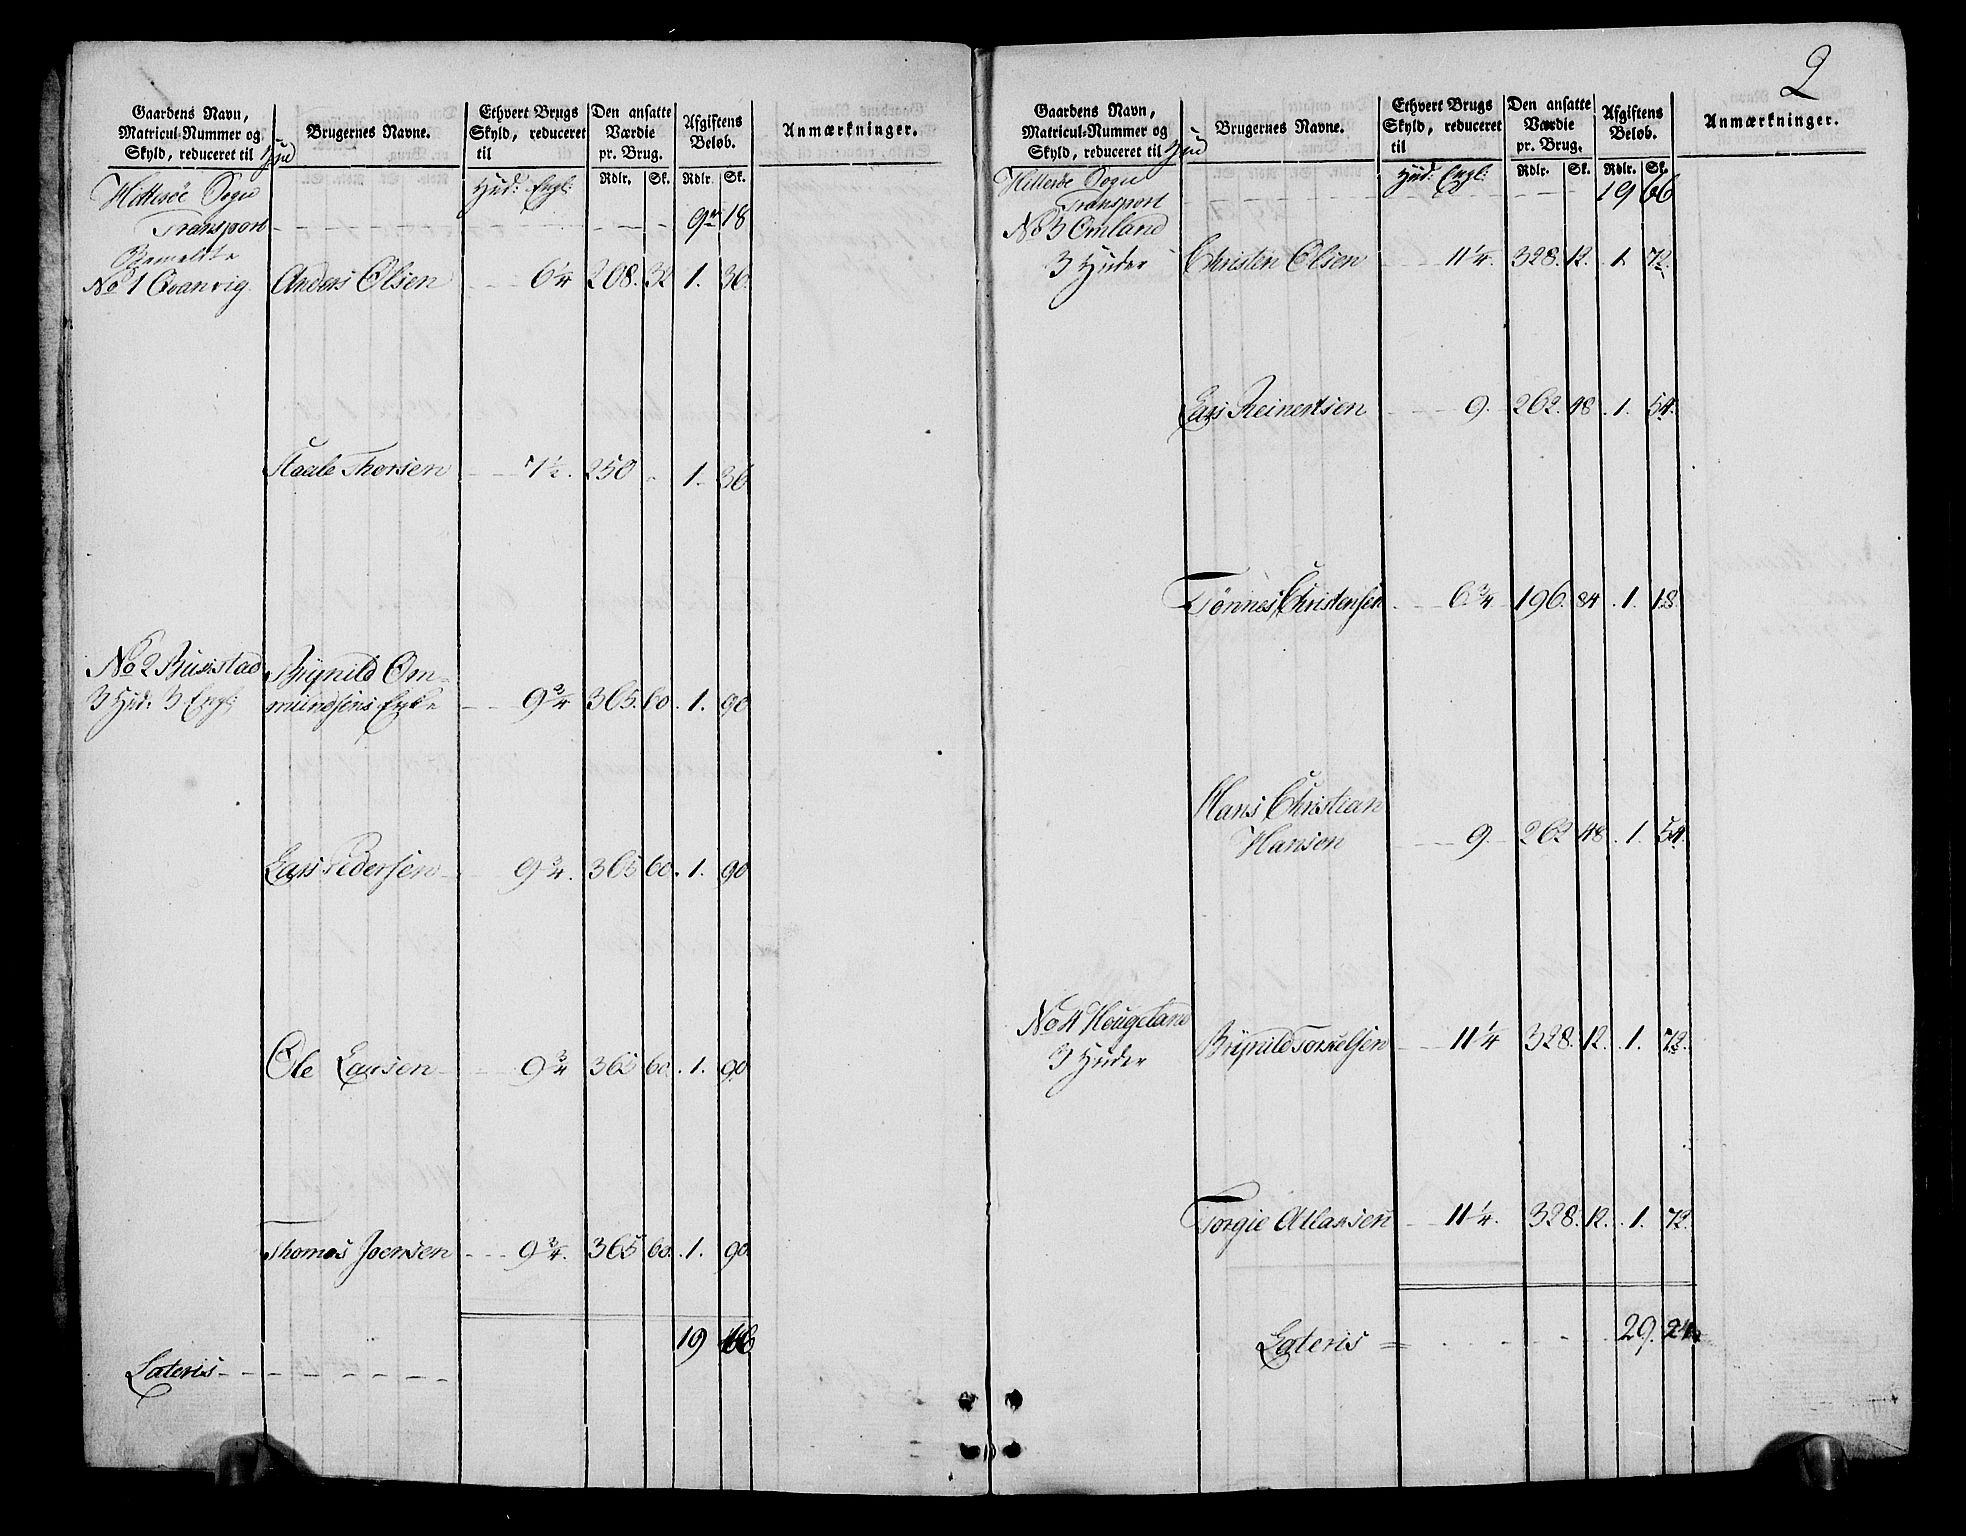 Gaardens Navn, Matricul-Nummer og Skyld, reduceret til Hud
Brugernes Navne.
Ethvert Brugs Skyld, reduceret til
Den ansatte Værdie pr. Brug.
Afgiftens Beløb.
Anmærkninger.
Hud: Engl:
Rdlr. Sk. Rdlr. Sk.
Hitterøe Sogn
Transport 9 18
Bemeldte
No 1 Qvanvig. Anders Olsen 6 1/4 208. 32 1. 36.
Staale Thorsen 7 1/2. 250 - 1. 36
No 2 Rusistad Brynild Om-
3 Hud: 3 Engl: mundsens Enke 9 3/4 365. 60. 1. 90
Lars Pedersen 9 3/4. 365 60. 1. 90
Ole Larsen 9 3/4 365 60. 1. 90
Thomas Joensen 9 3/4. 365 60. 1. 90.
19 66
Lateris
2
Gaardens Navn, Matricul-Nummer og Skyld, reduceret til Hud
Brugernes Navne.
Ethvert Brugs Skyld, reduceret til
Den ansatte Værdie pr. Brug.
Afgiftens Beløb.
Anmærkninger.
Hud: Engl:
Rdlr. Sk. Rdlr. Sk.
Hitterøe Sogn
Transport 19 66
No 3 Omland
3 Huder Christen Olsen 11 1/4. 328. 12. 1. 72.
Lars Reinertsen 9. 262. 48. 1. 54.
Tønnes Christensen 6 3/4 196. 84. 1. 18.
Hans Christian
Hansen 9. 262 48. 1. 54.
No 4 Hougeland
3 Huder Brynild Torkelsen 11 1/4 328. 12. 1. 72.
Torgie Atlaksen 11 1/4. 328. 12. 1. 72.
Lateris 29. 24